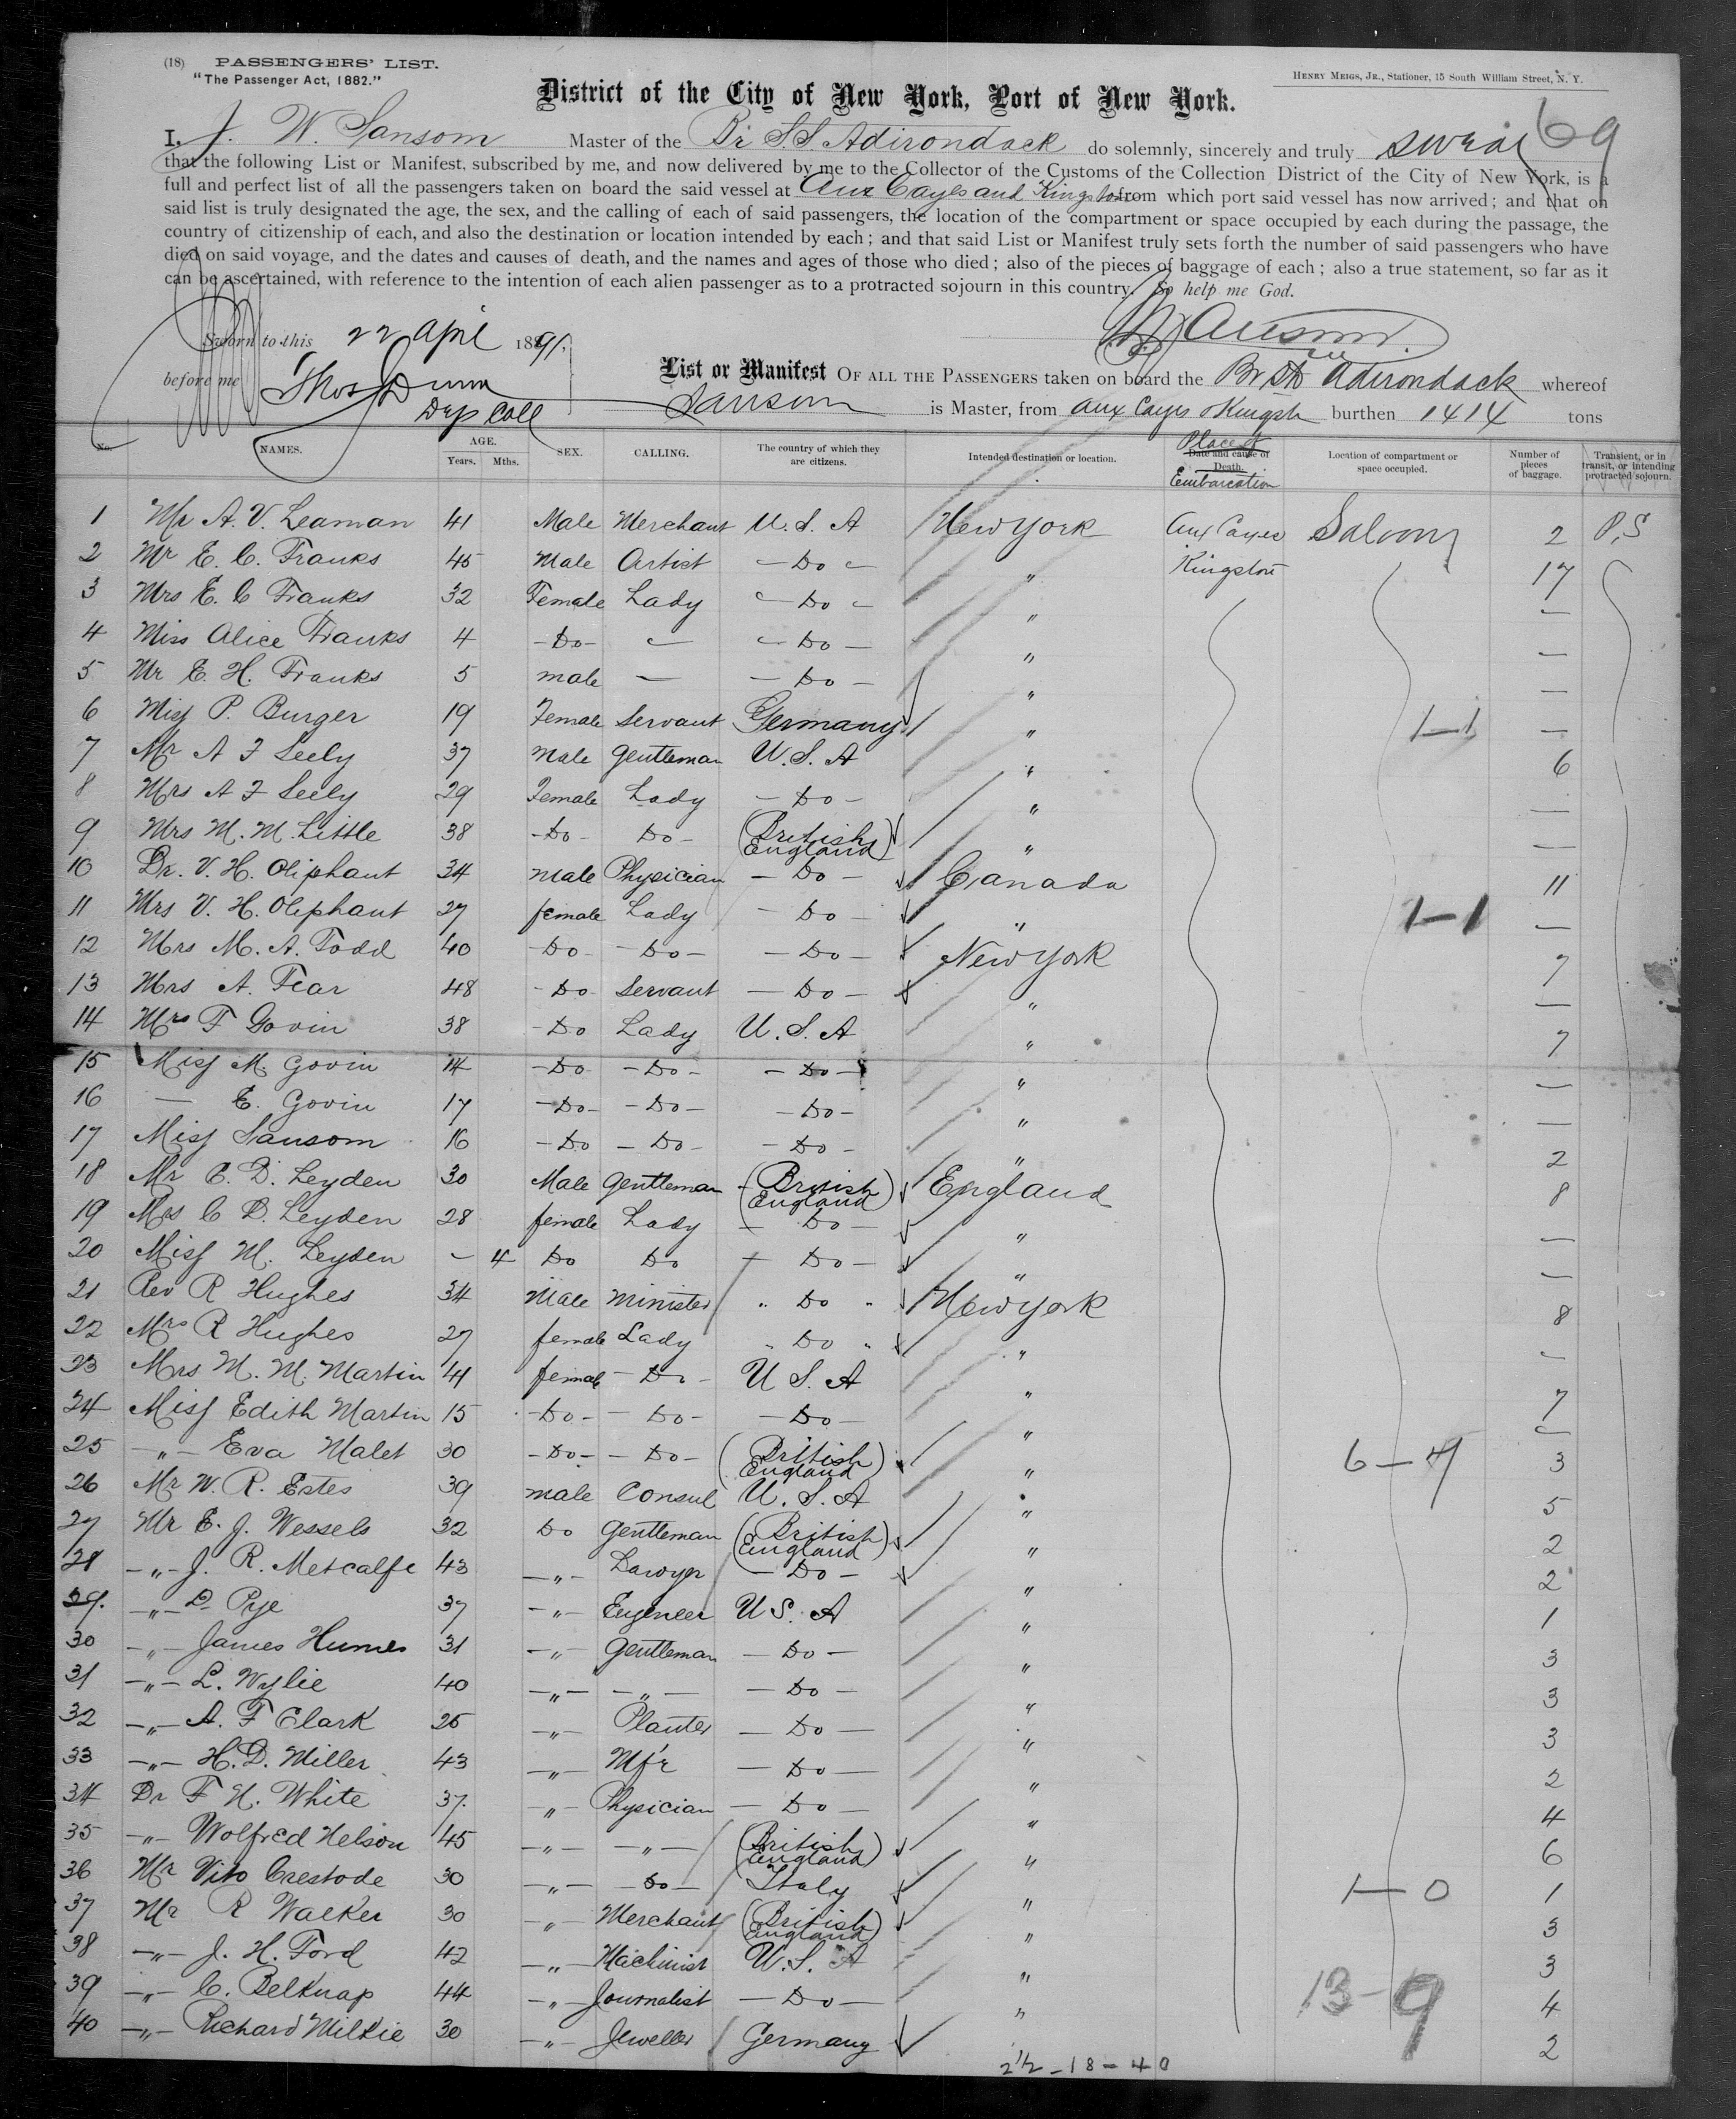 (18) PASSENGERS' LIST.
"The Passenger Act, 1882."
HENRY MEIGS, JR., Stationer, 15 South William Street, N. Y.
District of the City of New York, Port of New York.
69
I, J. W. Sansom Master of the Br S.S. Adirondack do solemnly, sincerely and truly swear
that the following List or Manifest, subscribed by me, and now delivered by me to the Collector of the Customs of the Collection District of the City of New York, is a
full and perfect list of all the passengers taken on board the said vessel at Aux Cayes and Kingston from which port said vessel has now arrived; and that on
said list is truly designated the age, the sex, and the calling of each of said passengers, the location of the compartment or space occupied by each during the passage, the
country of citizenship of each, and also the destination or location intended by each; and that said List or Manifest truly sets forth the number of said passengers who have
died on said voyage, and the dates and causes of death, and the names and ages of those who died; also of the pieces of baggage of each; also a true statement, so far as it
can be ascertained, with reference to the intention of each alien passenger as to a protracted sojourn in this country. So help me God.
Sworn to this 22 April 1891. JWSansom.
before me Thos Dunn
Dep Coll
List or Manifest OF ALL THE PASSENGERS taken on board the Br Str Adirondack whereof
Sansom is Master, from Aux Cayes & Kingstn burthen 1414 tons
No. NAMES. AGE. Years. Mths. SEX. CALLING. The country of which they are citizens. Intended destination or location. Date and cause of Death. Place of Embarcation Location of compartment or space occupied. Number of pieces of baggage. Transient, or in transit, or intending protracted sojourn.
1 Mr A. V. Leaman 41 Male Merchant U. S. A New York Aux Cayes Saloon 2 P.S
2 Mr E. C. Franks 45 Male Artist - Do - " Kingston 17
3 Mrs E. C Franks 32 Female Lady - Do - " -
4 Miss Alice Franks 4 - Do - - - Do - " -
5 Mr E. H. Franks 5 male - - Do - " -
6 Miss P. Burger 19 Female Servant Germany " 1-1 -
7 Mr A F Seely 37 male Gentleman U. S. A " 6
8 Mrs A F Seely 29 Female Lady - Do - " -
9 Mrs M. M. Little 38 - Do - Do - (British England) " -
10 Dr. V. H. Oliphant 34 male Physician - Do - Canada 11
11 Mrs V. H. Oliphant 27 female Lady - Do - " 1-1 -
12 Mrs M. A. Todd 40 - Do - - Do - - Do - New York 7
13 Mrs A. Fear 48 - Do Servant - Do - " -
14 Mrs F Govin 38 - Do Lady U. S. A " 7
15 Miss M. Govin 14 - Do - Do - - Do - " -
16 - E. Govin 17 - Do - - Do - - Do - " -
17 Miss Sansom 16 - Do - Do - - Do - " 2
18 Mr C. D. Leyden 30 Male Gentleman (British England) England 8
19 Mrs C D. Leyden 28 female Lady - Do - " -
20 Miss M. Leyden - 4 Do Do - Do - " -
21 Rev R Hughes 34 Male Minister " Do " New York 8
22 Mrs R Hughes 27 female Lady " Do " " -
23 Mrs M. M. Martin 41 female - Do - U S. A " 7
24 Miss Edith Martin 15 - Do - - Do - - Do - " -
25 - " - Eva Malet 30 - Do - - Do - (British England) " 6-7 3
26 Mr W. R. Estes 39 male Consul U. S. A " 5
27 Mr E. J. Wessels 32 Do Gentleman (British England) " 2
28 - " - J. R. Metcalfe 43 - " - Lawyer - Do - " 2
29. - " - D Pye 37 - " - Engineer U S. A " 1
30 - " - James Humes 31 - " - Gentleman - Do - " 3
31 - " - L. Wylie 40 - " - - " - - Do - " 3
32 - " - A. F Clark 25 - " - Planter - Do - " 3
33 - " - H. D. Miller 43 - " - Mfr - Do - " 2
34 Dr F H. White 37. - " - Physician - Do - " 4
35 - " - Wolfred Nelson 45 - " - - " - (British England) " 6
36 Mr Vito Crestode 30 - " - - Do - Italy " 1-0 1
37 Mr R Walker 30 - " - Merchant (British England) " 3
38 - " - J. H. Ford 42 - " - Machinist U. S. A " 3
39 - " - C. Belknap 44 - " - Journalist - Do - " 13-9 4
40 - " - Richard Milkie 30 - " - Jeweller Germany " 2
2 1/2 - 18 - 40